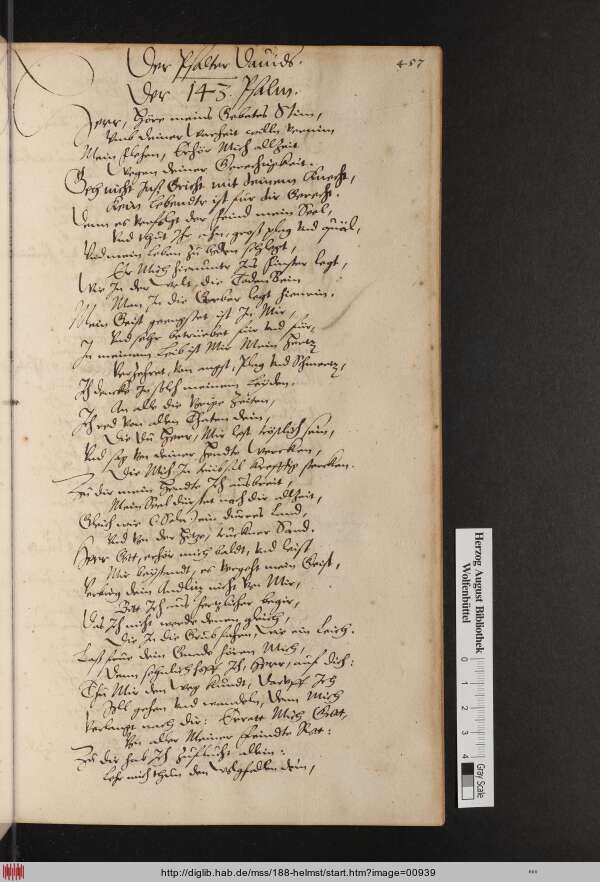 Der Psalter Dauids.
457
Der 143. Psalm.
Herr, Höre meins Gebetes Stim,
Vmb deiner Warheit willn vernim
Mein flehen, Erhör Mich allzeit
Wegen deiner Gerechtigkeit.
Geh nicht Jnß Gricht mit deinem Knecht,
Kein lebendtr ist für dir Gerecht.
Denn es verfolgt der feind mein Seel,
Vnd thut Jhr ahn, groß plag Vnd quäl,
Vnd mein leben zu boden schlegt,
Er Mich hierunter Jns finster legt,
Wie Jn der Welt, die Todten Sein
Man Jn die Greber legt hinein.
Mein Geist geengstet ist Jn Mir,
Vnd sehr betrübet für Vnd für,
Jn meinem leib ist Mir Mein Hertz
Verzehret, Von angst, Plag Vnd Schmertz,
Jch dencke Jn solch meinem Leyden,
An alle die Vorige Zeiten,
Jch red Von allen Thaten dein,
Die Du Herr, Mir lest tröstlich sein,
Vnd sag Von deiner Hendte Wercken,
Die Mich Jn trübsal krefftig stercken.
Zu dir mein Hendte Jch ausbreit,
Mein Seel dürstet nach dir allzeit,
Gleich wie ein dürres Land,
Vnd Von der Hitze, truckner Sand.
Herr Gott, erhör mich baldt, Vnd leist
Mir beystandt, es Vergeht mein Geist,
Verbirg dein Andlitz nicht Von Mir,
Bitt Jch aus hertzlicher begir,
Das Jch nicht werde denen gleich,
Die Jn die Grub fahren, Wie ein Leich.
Laß frue dein Gnade hören Mich,
Denn sehnlich hoff Jch, Herr, auf dich:
Thu Mir den Weg kundt, darauff Jch
Soll gehen Vnd wandeln, denn Mich
Verlangt nach dir: Errett Mich Gott,
Von aller Meiner feindte Rott:
Zu dir hab Jch Zuflucht allein:
Lehr mich thun den wolgfallen dein,
Herzog August Bibliothek
Wolfenbüttel
0 1 2 3 4
Gray Scale
http://diglib.hab.de/mss/188-helmst/start.htm?image=00939